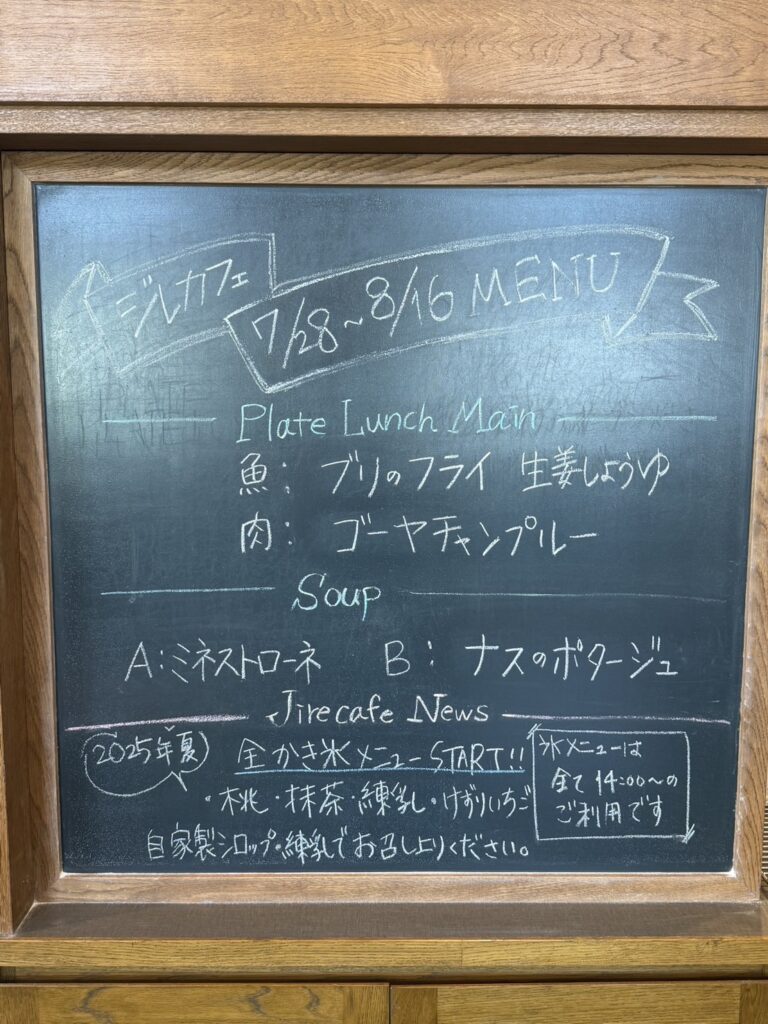 ジルカフェ
7/28~8/16 MENU
Plate Lunch Main
魚: ブリのフライ 生姜しょうゆ
肉: ゴーヤチャンプルー
Soup
A:ミネストローネ B: ナスのポタージュ
Jirecafe News
2025年夏
全かき氷メニューSTART!!
・桃・抹茶・練乳・けずりいちご
自家製シロップ・練乳でお召し上りください。
氷メニューは
全て14:00~の
ご利用です